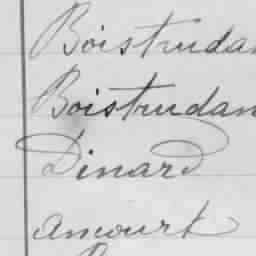 Boistrudan
Boistrudan
Dinard
Amourt